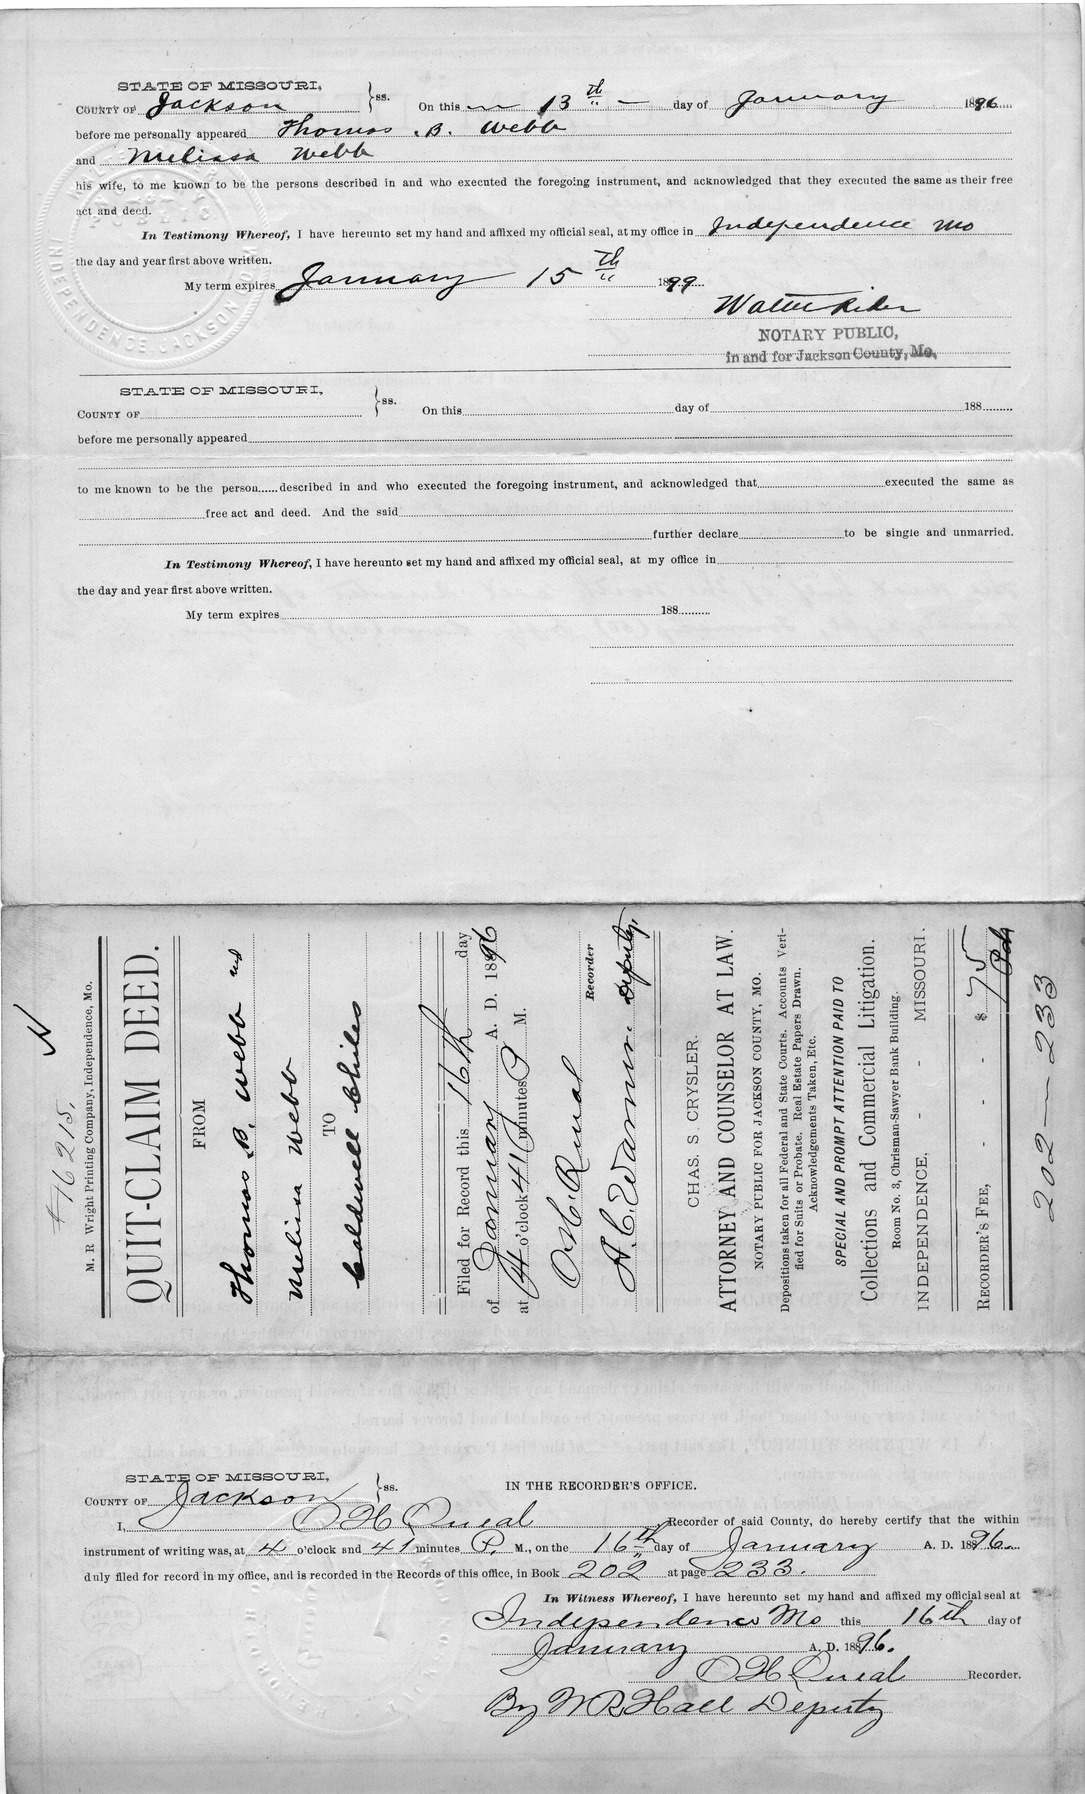 STATE OF MISSOURI,
COUNTY OF Jackson }ss. On this 13th day of January 1896
before me personally appeared Thomas B. Webb
and Melissa Webb
his wife, to me known to be the persons described in and who executed the foregoing instrument, and acknowledged that they executed the same as their free
act and deed.
In Testimony Whereof, I have hereunto set my hand and affixed my official seal, at my office in Independence Mo
the day and year first above written.
My term expires January 15th 1899
Walter
NOTARY PUBLIC,
in and for Jackson County, Mo.
INDEPENDENCE JACKSON CO. MO
STATE OF MISSOURI,
COUNTY OF }ss. On this day of 188
before me personally appeared
to me known to be the person described in and who executed the foregoing instrument, and acknowledged that executed the same as
free act and deed. And the said
further declare to be single and unmarried.
In Testimony Whereof, I have hereunto set my hand and affixed my official seal, at my office in
the day and year first above written.
My term expires 188
#16215,
M. R. Wright Printing Company, Independence, Mo.
QUIT-CLAIM DEED.
FROM
Thomas B. Webb and
Melissa Webb
TO
Caldwell Chiles
Filed for Record this 16th day
of January A. D. 1896
at 4 o'clock 41 minutes P M.
O. H. Queal
Recorder
Deputy.
CHAS. S. CRYSLER.
ATTORNEY AND COUNSELOR AT LAW.
NOTARY PUBLIC FOR JACKSON COUNTY, MO.
Depositions taken for all Federal and State Courts. Accounts Veri-
fied for Suits or Probate. Real Estate Papers Drawn.
Acknowledgements Taken, Etc.
SPECIAL AND PROMPT ATTENTION PAID TO
Collections and Commercial Litigation.
Room No. 3, Chrisman-Sawyer Bank Building.
INDEPENDENCE, - - MISSOURI.
RECORDER'S FEE, - - - $ 75
Pd
202—233
STATE OF MISSOURI,
COUNTY OF Jackson }ss. IN THE RECORDER'S OFFICE.
I, O H Queal Recorder of said County, do hereby certify that the within
instrument of writing was, at 4 o'clock and 41 minutes P. M., on the 16th day of January A. D. 1896
duly filed for record in my office, and is recorded in the Records of this office, in Book 202 at page 233.
In Witness Whereof, I have hereunto set my hand and affixed my official seal at
Independence Mo this 16th day of
January A. D. 1896.
O H Queal Recorder.
By W R Hall Deputy